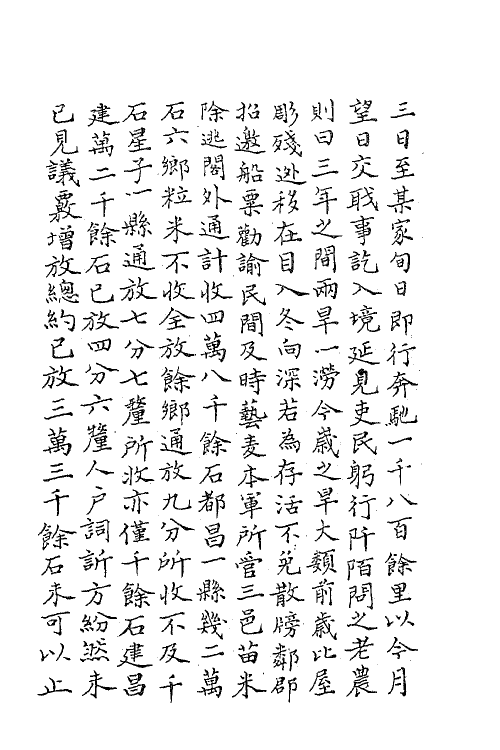 三日至某家旬日即行奔馳一千八百餘里以今月
望日交戝事訖入境延見吏民躬行阡陌問之老農
則曰三年之間兩旱一澇今歳之旱大類前歳比屋
彫殘逊移在目入冬向深若為存活不免散牓鄰郡
招邀船粟勸諭民間及時藝麦本軍所管三邑苗米
除逃閣外通計收四萬八千餘石都昌一縣幾二萬
石六鄉粒米不收全放餘鄉通放九分所收不及千
石星子一縣通放七分七釐所收亦僅千餘石建昌
建萬二千餘石已放四分六釐人户詞訴方紛然未
已見議覈增放總約已放三萬三千餘石未可以止